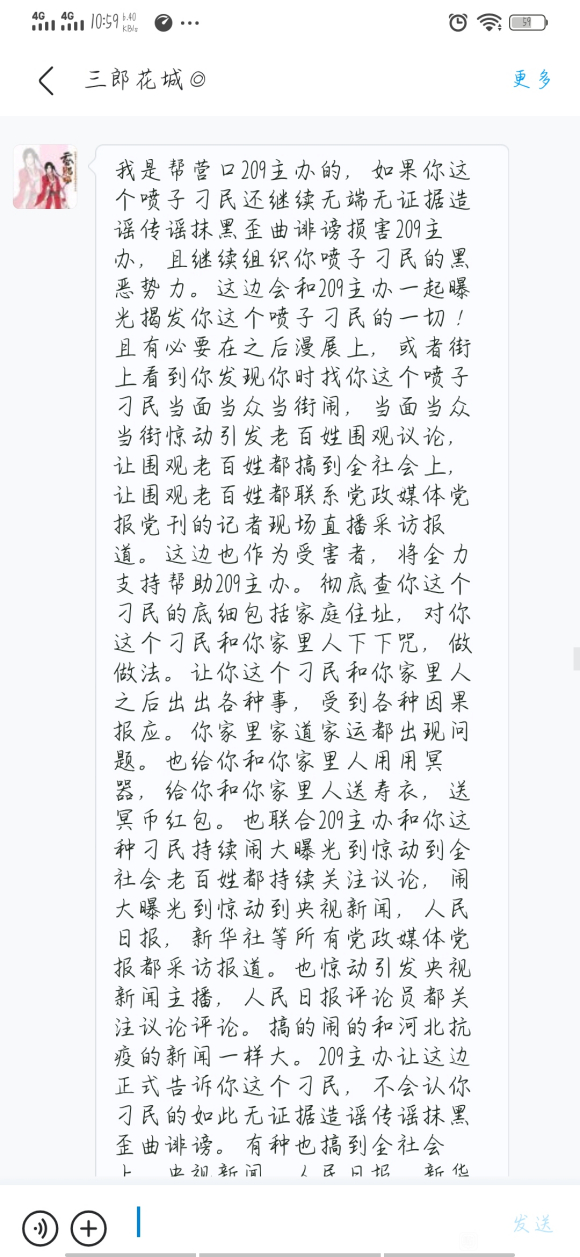 4G 4G 10:59 6.40 KB/s 59
三郎花城◎
更多
我是帮营口209主办的，如果你这
个喷子刁民还继续无端无证据造
谣传谣抹黑歪曲诽谤损害209主
办，且继续组织你喷子刁民的黑
恶势力。这边会和209主办一起曝
光揭发你这个喷子刁民的一切！
且有必要在之后漫展上，或者街
上看到你发现你时找你这个喷子
刁民当面当众当街闹，当面当众
当街惊动引发老百姓围观议论，
让围观老百姓都搞到全社会上，
让围观老百姓都联系党政媒体党
报党刊的记者现场直播采访报
道。这边也作为受害者，将全力
支持帮助209主办。彻底查你这个
刁民的底细包括家庭住址，对你
这个刁民和你家里人下下咒，做
做法。让你这个刁民和你家里人
之后出出各种事，受到各种因果
报应。你家里家道家运都出现问
题。也给你和你家里人用用冥
器，给你和你家里人送寿衣，送
冥币红包。也联合209主办和你这
种刁民持续闹大曝光到惊动到全
社会老百姓都持续关注议论，闹
大曝光到惊动到央视新闻，人民
日报，新华社等所有党政媒体党
报都采访报道。也惊动引发央视
新闻主播，人民日报评论员都关
注议论评论。搞的闹的和河北抗
疫的新闻一样大。209主办让这边
正式告诉你这个刁民，不会认你
刁民的如此无证据造谣传谣抹黑
歪曲诽谤。有种也搞到全社会
上，央视新闻，人民日报，新华
发送